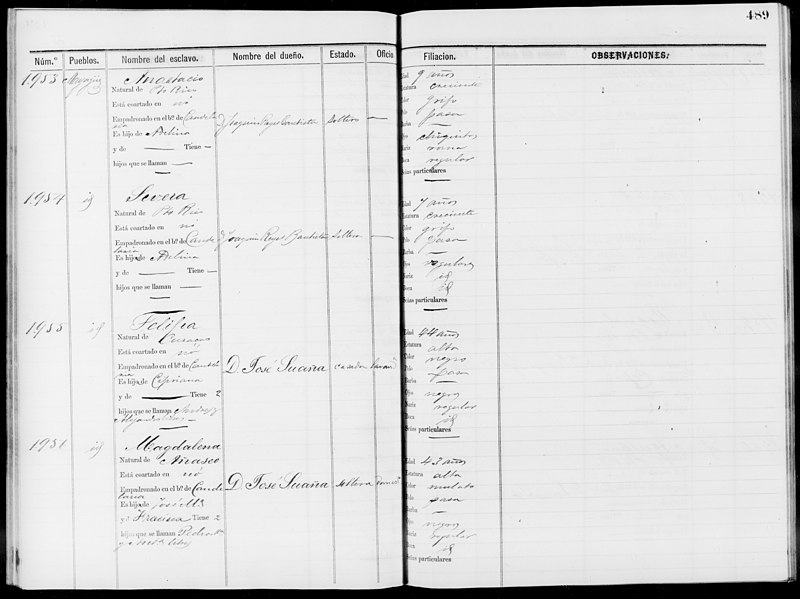 489
Núm.º Pueblos. Nombre del esclavo. Nombre del dueño. Estado. Oficio Filiacion. OBSERVACIONES.
1983
Anastacio
Natural de Pto Rico
Está coartado en no
Empadronado en el bº de Candela
ria
Es hijo de Avelina
y de — Tiene —
hijos que se llaman —
Joaquin Reyes Bautista
soltero —
Edad 9 años
Estatura creciente
Color grifo
Pelo pasa
Barba —
Ojos
Nariz roma
Boca regular
Señas particulares
—
1984 id
Severa
Natural de Pto Rico
Está coartado en no
Empadronado en el bº de Cande
laria
Es hijo de Avelina
y de — Tiene —
hijos que se llaman —
Joaquin Reyes Bautista
soltera —
Edad 7 años
Estatura creciente
Color grifo
Pelo pasa
Barba —
Ojos regulares
Nariz id
Boca id
Señas particulares
—
1985 id
Felipa
Natural de Curaçao
Está coartado en no
Empadronado en el bº de Candela
ria
Es hijo de Cipriana
y de — Tiene 2
hijos que se llaman
D. José Suaña
casada
Edad 44 años
Estatura alta
Color negro
Pelo pasa
Barba —
Ojos negros
Nariz regular
Boca id
Señas particulares
—
1986 id
Magdalena
Natural de Añasco
Está coartado en no
Empadronado en el bº de Cande
laria
Es hijo de José Mª
y de Francisca Tiene 2
hijos que se llaman
D. José Suaña
soltera
Edad 43 años
Estatura alta
Color mulato
Pelo pasa
Barba —
Ojos negros
Nariz regular
Boca id
Señas particulares